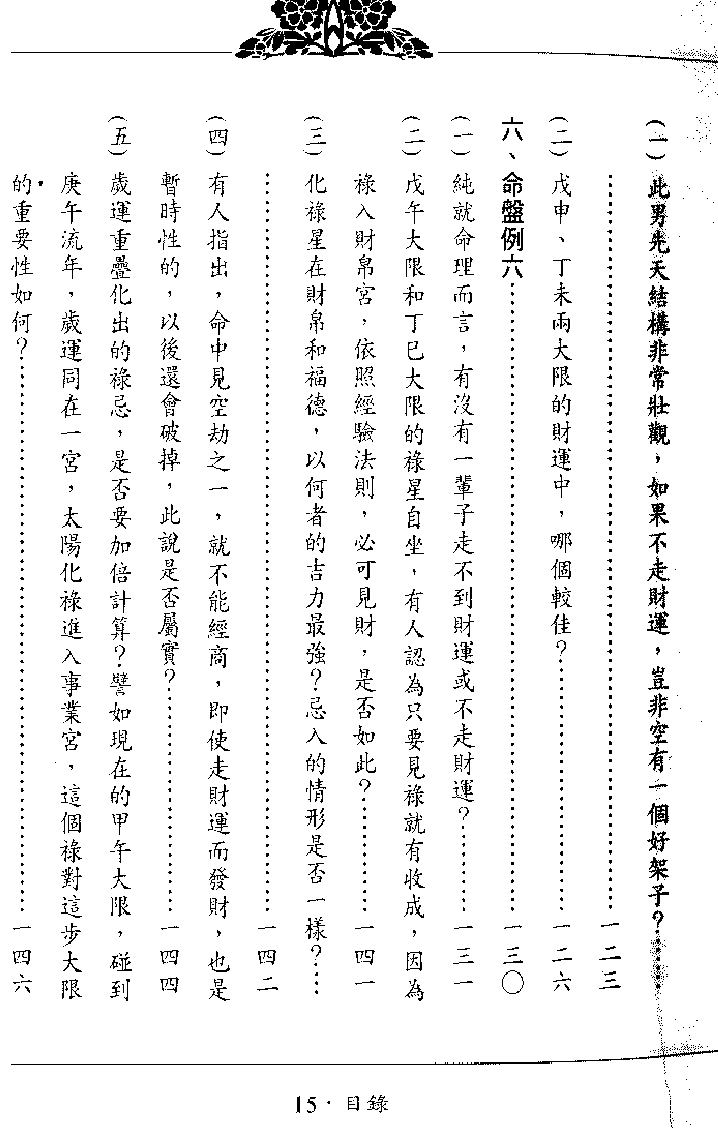 (一)此男先天結構非常壯觀，如果不走財運，豈非空有一個好架子？……
……………………………………一二三
(二)戊申、丁未兩大限的財運中，哪個較佳？……………………一二六
六、命盤例六……………………………………一三〇
(一)純就命理而言，有沒有一輩子走不到財運或不走財運？…………一三一
(二)戊午大限和丁巳大限的祿星自坐，有人認為只要見祿就有收成，因為
祿入財帛宮，依照經驗法則，必可見財，是否如此？…………一四一
(三)化祿星在財帛和福德，以何者的吉力最強？忌入的情形是否一樣？……
……………………………………一四二
(四)有人指出，命中見空劫之一，就不能經商，即使走財運而發財，也是
暫時性的，以後還會破掉，此說是否屬實？……………………一四四
(五)歲運重疊化出的祿忌，是否要加倍計算？譬如現在的甲午大限，碰到
庚午流年，歲運同在一宮，太陽化祿進入事業宮，這個祿對這步大限
的重要性如何？……………………………………一四六
15・目錄